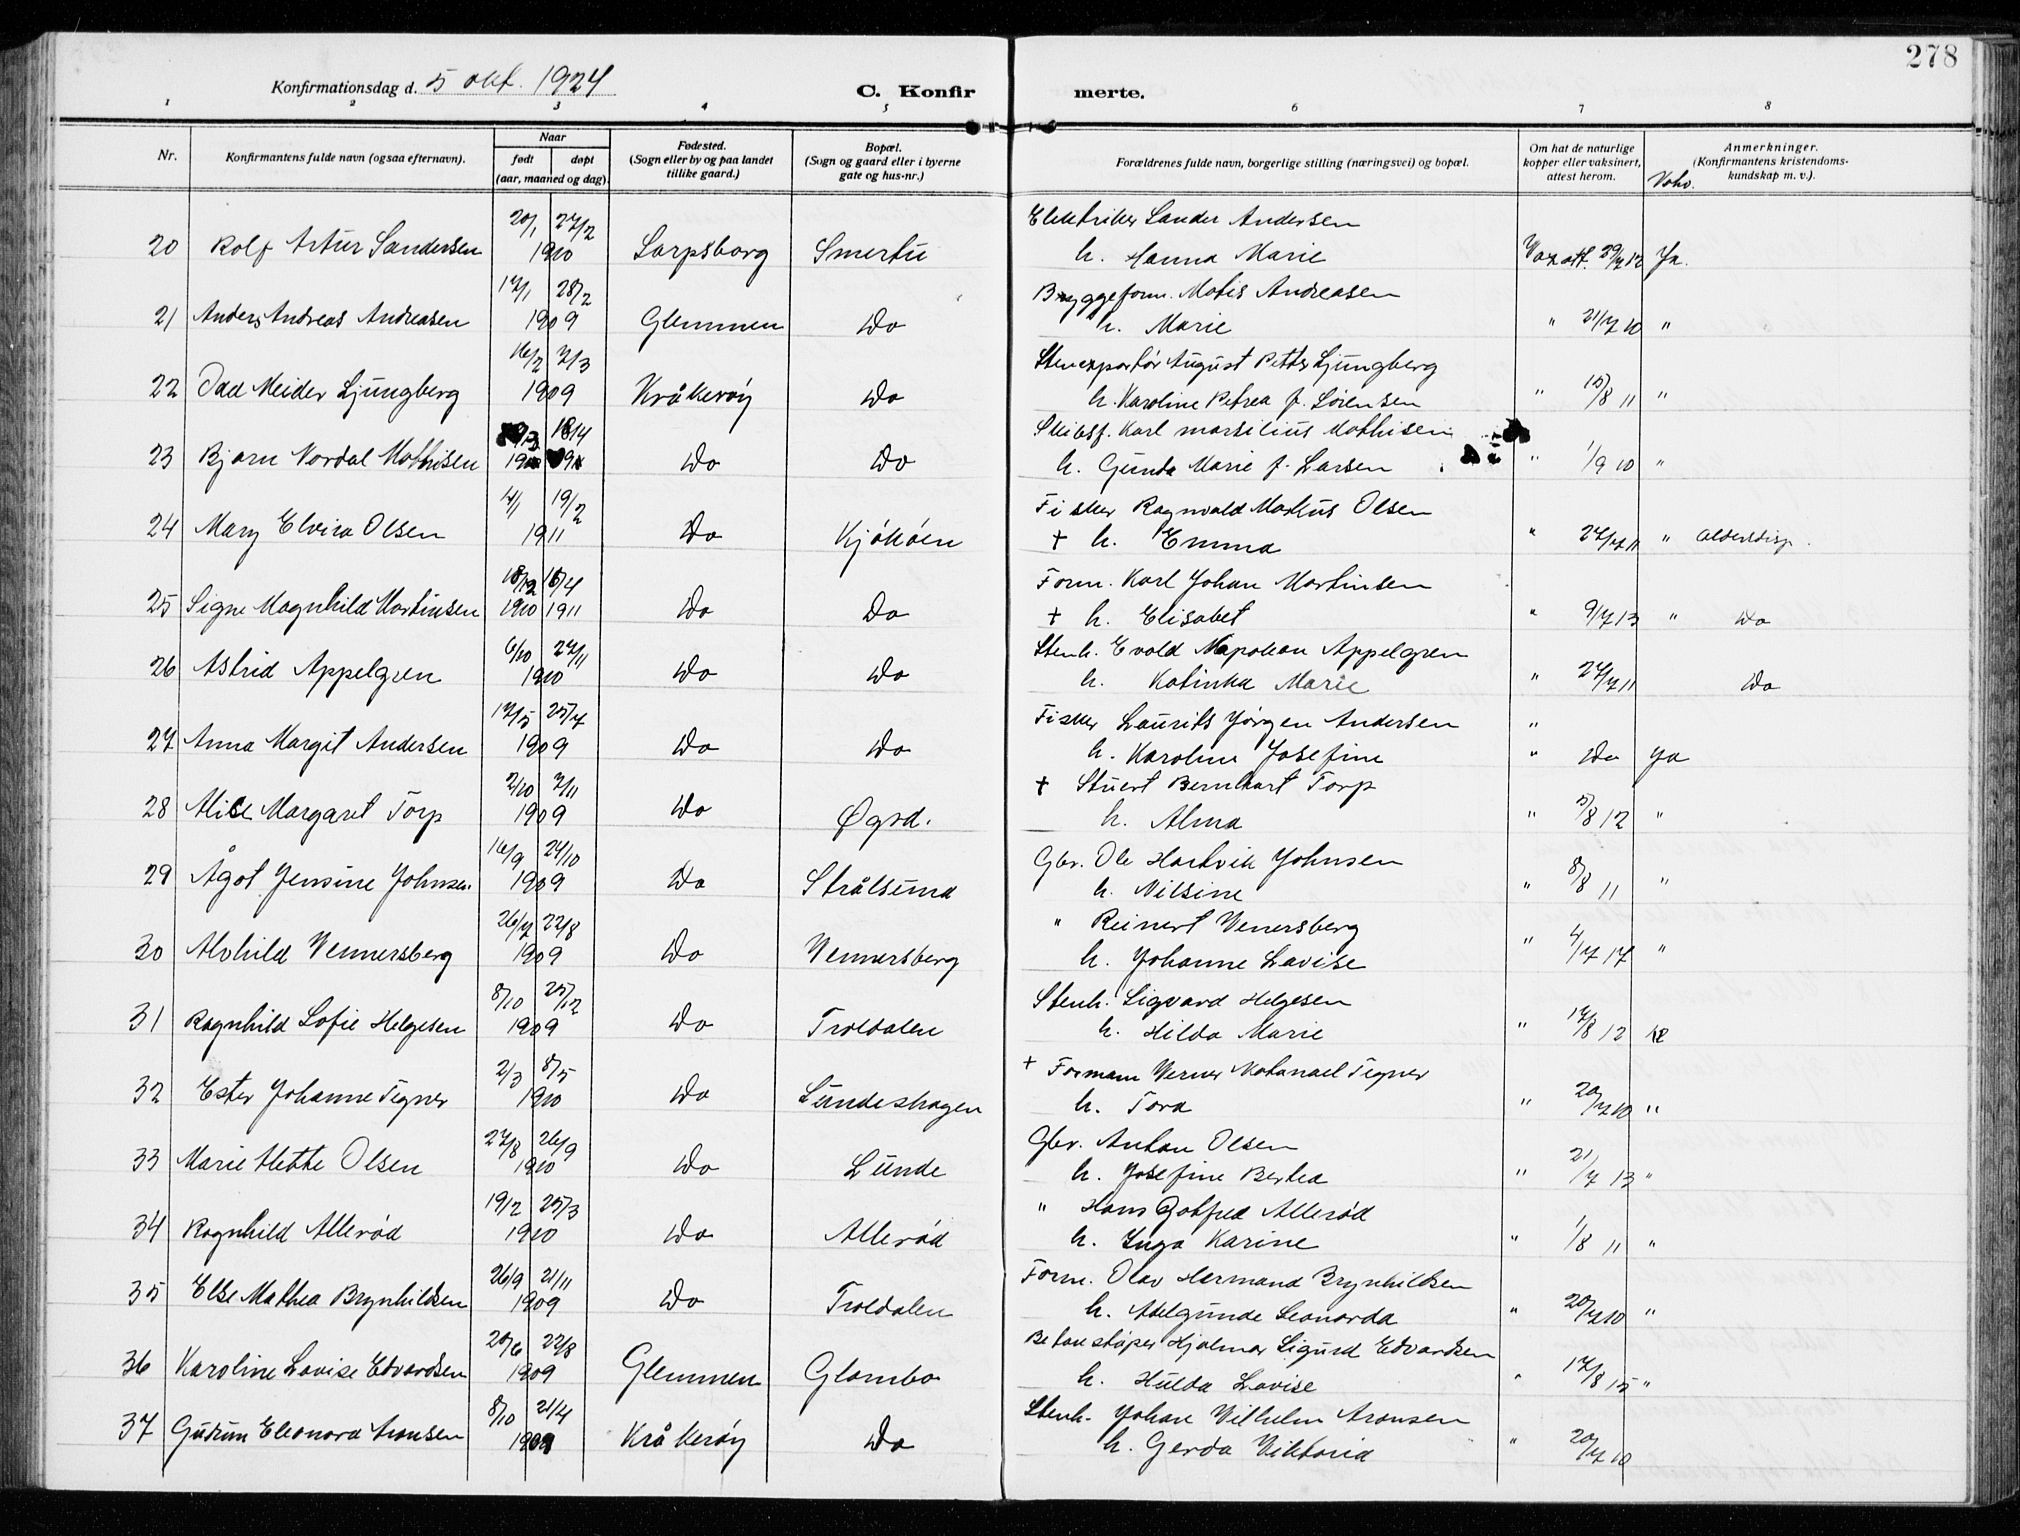 278
Konfirmationsdag d. 5 okt. 1924
C. Konfir merte.
1 2 3 4 5 6 7 8
Nr. Konfirmantens fulde navn (ogsaa efternavn). Naar født døpt (aar, maaned og dag). Fødested. (Sogn eller by og paa landet tillike gaard.) Bopæl. (Sogn og gaard eller i byerne gate og hus-nr.) Forældrenes fulde navn, borgerlige stilling (næringsvei) og bopæl. Om hat de naturlige kopper eller vaksinert, attest herom. Anmerkninger. (Konfirmantens kristendoms-kundskap m. v.).
20/1 27/2 Elektriker Sander Andersen
20 Rolf Artur Sandersen 1910 Sarpsborg Smertu h. Hanna Marie Vaz att. 29/7 12 Ja.
17/1 28/2 Bryggeform. Matis Andreasen
21 Anders Andreas Andreasen 1909 Glemmen Do h. Marie " 21/7 10 "
16/2 7/3 Stenexportør August Petter Ljungberg
22 Odd Meider Ljungberg 1909 Kråkerøy Do h. Karoline Petrea f. Sørensen " 15/8 11 "
18/4 Skibsf. Karl Marsilius Mathisen
23 Bjarn Nordal Mathisen Do Do h. Gunda Marie f. Larsen " 1/9 10 "
4/1 19/2 Fisker Ragnvald Markus Olsen
24 Mary Elvira Olsen 1911 Do Kjøkøen + h. Emma " 27/7 11 " Aldersdisp.
18/12 16/4 Form. Karl Johan Martinsen
25 Signe Magnhild Martinsen 1910 1911 Do Do + h. Elisabet " 9/7 13 " Do
6/10 27/11 Stenh. Evald Napoleon Appelgren
26 Astrid Appelgren 1910 Do Do h. Katinka Marie " 27/7 11 Do
17/5 25/7 Fisker Laurits Jørgen Andersen "
27 Anna Margit Andersen 1909 Do Do h. Karoline Josefine " Do Ja
2/10 7/11 + Stuert Bernhart Torp
28 Alise Margaret Torp 1909 Do Øgrd. h. Alma " 5/8 12 "
16/9 24/10 Gbr. Ole Hartvik Johnsen
29 Ågot Jensine Johnsen. 1909 Do Strålsund h. Nilsine " 8/8 11 "
26/7 22/8 " Reinert Venersberg
30 Alvhild Vennersberg 1909 Do Vennersberg h. Johanne Lovise " 4/7 17 "
8/10 25/12 Stenh. Sigvard Helgesen
31 Ragnhild Sofie Helgesen 1909 Do Troldalen h. Hilda Marie " 17/8 12
2/3 8/5 + Formann Verner Natanael Tegner
32 Ester Johanne Tegner 1910 Do Lundeshagen h. Tora " 20/7 10 "
27/8 26/9 Gbr. Anton Olsen
33 Marie Mette Olsen 1910 Do Lunde h. Josefine Bertea " 21/7 13 "
19/2 25/3 " Hans Gotfred Allerød
34 Ragnhild Allerød 1910 Do Allerød h. Inga Karine " 1/8 11 "
26/9 21/11 Form. Olav Hermand Brynhildsen
35 Else Mathea Brynhildsen 1909 Do Troldalen h. Adelgunde Leonarda " 20/7 10 "
20/6 22/8 Betonstøper Hjalmar Sigurd Edvardsen
36 Karoline Lovise Edvardsen 1909 Glemmen Glombo h. Hulda Lovise " 17/8 15 "
8/10 21/4 Stenh. Johan Vilhelm Aronsen
37 Gudrun Eleonora Aronsen Kråkerøy Do h. Gerda Viktoria " 20/7 10